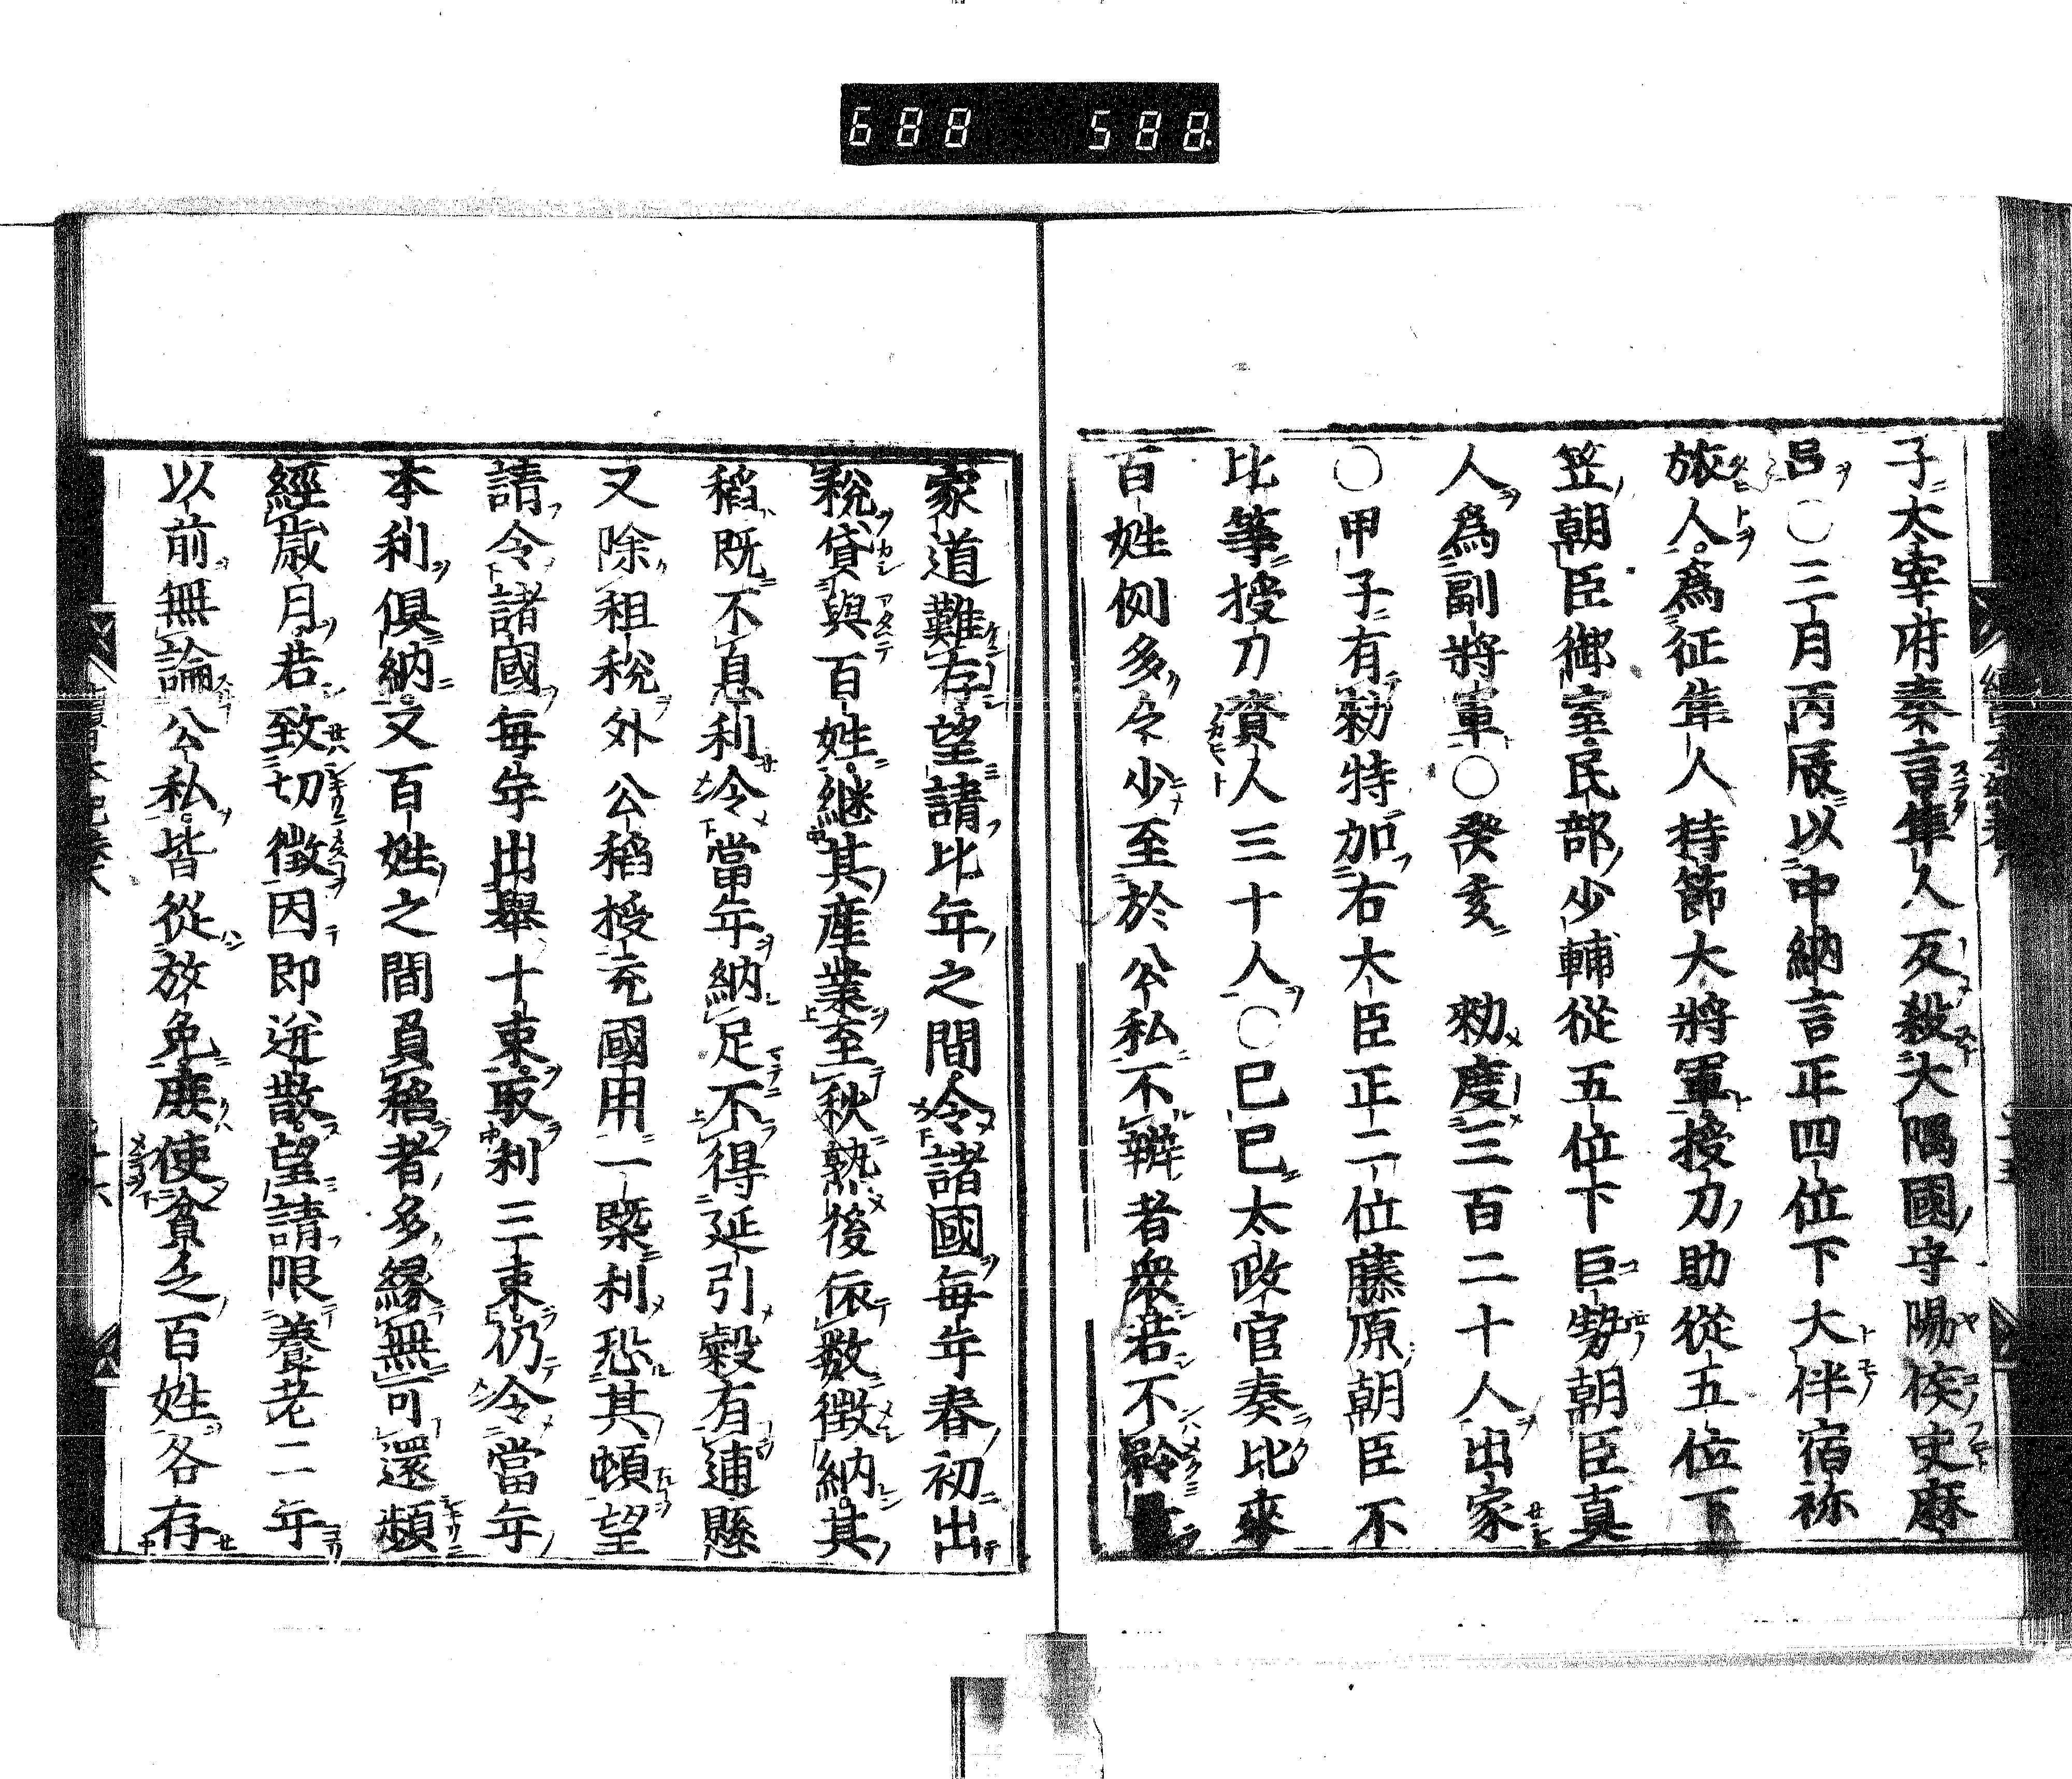 688 588
子太宰府奏言隼人反殺大隅國守陽侯史麻
呂○三月丙辰以中納言正四位下大伴宿祢
旅人爲征隼人持節大將軍授刀助從五位下
笠朝臣御室民部少輔從五位下巨勢朝臣真
人爲副將軍○癸亥 勑度三百二十人出家
○甲子有勑特加右大臣正二位藤原朝臣不
比等授刀資人三十人○已已太政官奏比來
百姓例多乏少至於公私不辨者衆若不矜
家道難存望請比年之間令諸國毎年春初出
税貸與百姓継其產業至秋熟後依數徵納其
稻既不息利令當年納足不得延引穀有逋懸
又除租税外公稻授充國用一槩利恐其頓望
請令諸國毎年出舉十束取利三束仍令當年
本利俱納又百姓之間負稻者多緣無可還頻
經歳月若致切徵因即逃散望請限養老二年
以前無論公私皆從放免庶使貧乏百姓各存